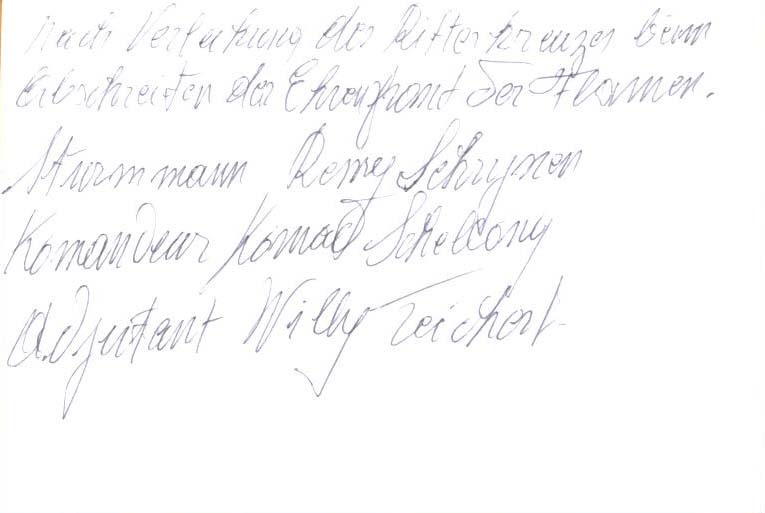 nach Verleihung des Ritterkreuzes beim
Abschreiten der Ehrenfront der Flamen.
Sturmmann Remy Schrynen
Komandeur Konrad Schellong
Adjutant Willy Teichert